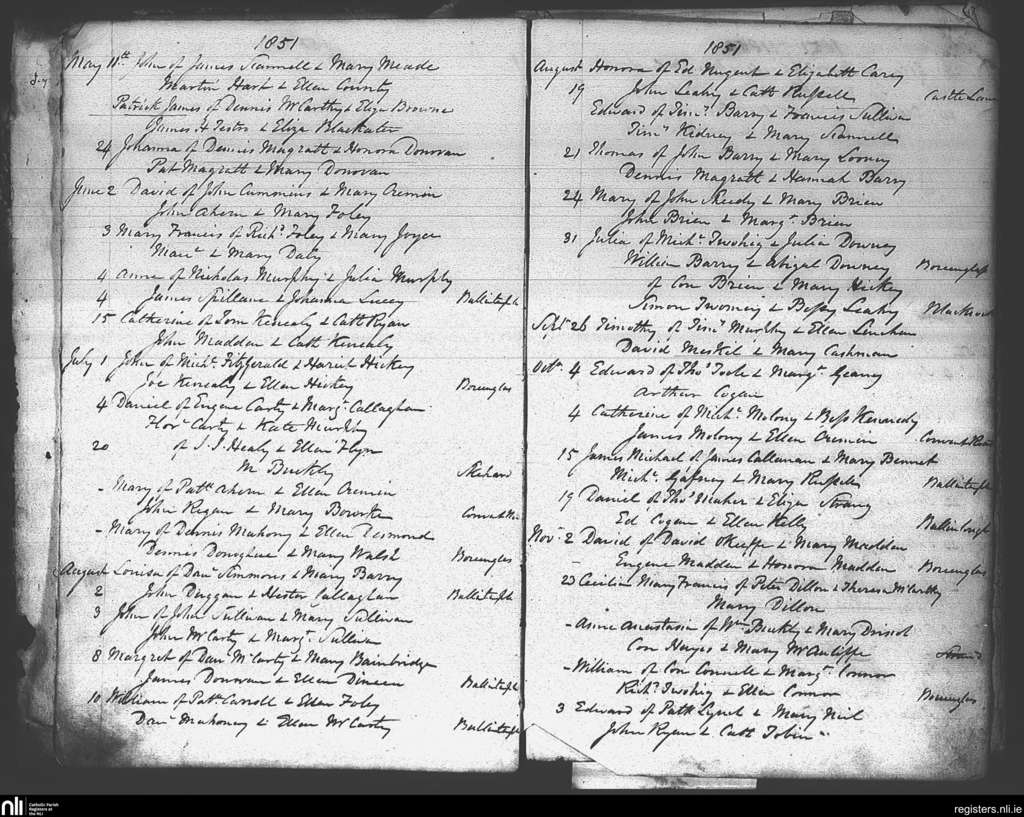 1851
May 11th John of James Scannell & Mary Meade
Martin Hart & Ellen County
Patrick James of Dennis McCarthy & Eliza Browne
James H & Eliza Blackater
24 Johanna of Dennis Magrath & Honora Donovan
Pat Magrath & Mary Donovan
June 2 David of John Cummins & Mary Cremin
John Ahern & Mary Foley
3 Mary Francis of Richd. Foley & Mary Joyce
Maur. & Mary Daly
4 Anne of Nicholas Murphy & Julia Murphy
4 James Spillane & Johanna Lucey
15 Catherine of Tom Kenealy & Cath Ryan
John Madden & Cath Kenealy
July 1 John of Michl. Fitzgerald & Hariet Hickey
Joe Kenealy & Ellen Hickey
4 Daniel of Eugene Carty & Margt. Callaghan
Flor. Carty & Kate Murphy
20 of J.J. Healy & Ellen Flynn
M Buckly
- Mary of Patk Ahern & Ellen Cremin
John Regan & Mary Bourke
- Mary of Dennis Mahony & Ellen Desmond
Dennis Donoghue & Mary Walsh
August Louisa of Danl Simmons & Mary Barry
2 John Duggan & Hester Callaghan
3 John of John Sullivan & Mary Sullivan
John McCarty & Margt. Sullivan
8 Margret of Danl McCarty & Mary Bainbridge
James Donovan & Ellen Dineen
10 William of Patk. Carroll & Ellen Foley
Danl Mahoney & Ellen McCarty
1851
August Honora of Ed Nugent & Elizabeth Carey
19 John Leahy & Cath Russell
Edward of Timy. Barry & Francis Sullivan
Timy Kidney & Mary Scannell
21 Thomas of John Barry & Mary Looney
Dennis Magrath & Hannah Barry
24 Mary of John Sheedy & Mary Brien
John Brien & Margt. Brien
31 Julia of Michl. Twohig & Julia Downey
William Barry & Abigal Downey
of Con Brien & Mary Hickey
Simon Twomey & Bessy Leahy
Sept 26 Timothy of Timy Murphy & Ellen Linehan
David Meskil & Mary Cashman
Octr. 4 Edward of Thos Toole & Margt. Geany
Arthur Cogan
4 Catherine of Michl. Molony & Bess Kennedy
James Molony & Ellen Cremin
15 James Michael of James Callanan & Mary Bennet
Michl. Gafney & Mary Russell
19 Daniel of Thos Maher & Eliza Strang
Ed Cogan & Ellen Kelly
Nov. 2 David of David OKeeffe & Mary Madden
- Eugene Madden & Honora Madden
23 Cecilia Mary Francis of Peter Dillon & Theresa McCarthy
Mary Dillon
- Anne Anastasia of Wm Buckly & Mary Driscol
Con Hayes & Mary McAuliffe
- William of Con Connell & Margt. Connor
Richd. Twohig & Ellen Connor
3 Edward of Patk Lynch & Mary Neil
John Ryan & Cath Tobin
nli
Catholic Parish
Registers at
the NLI
registers.nli.ie